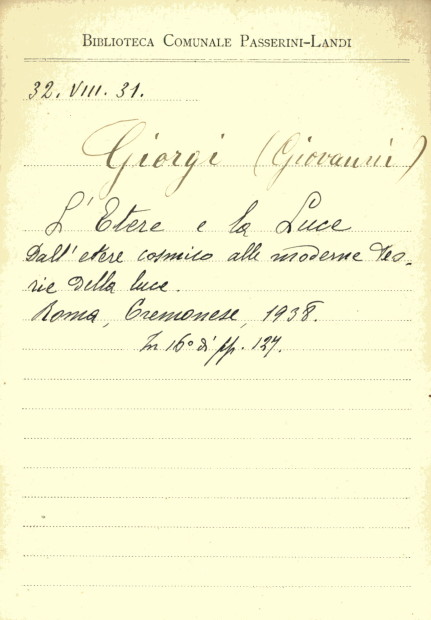 BIBLIOTECA COMUNALE PASSERINI-LANDI
32. VIII. 31.
Giorgi (Giovanni)
L'Etere e la Luce
Dall'etere cosmico alle moderne teo-
rie della luce.
Roma, Cremonese, 1938.
In 16° di pp. 127.